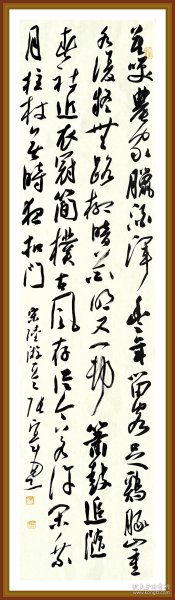 莫笑農家臘酒渾豐年留客足鷄豚山重
水復疑無路柳暗花明又一村簫鼓追隨
春社近衣冠簡樸古風存從今若許閑乘
月拄杖無時夜扣門
宋陸游